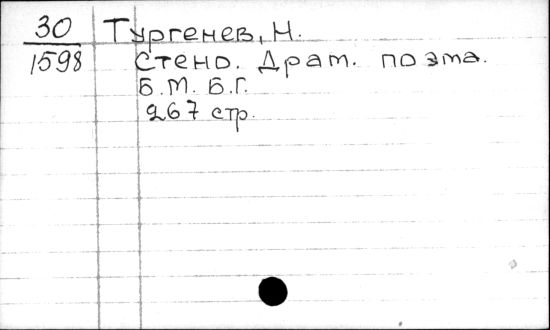 30 Тургенев, Н.
1598 Стено. Драт. поэма.
Б.М. Б.Г.
267 стр.